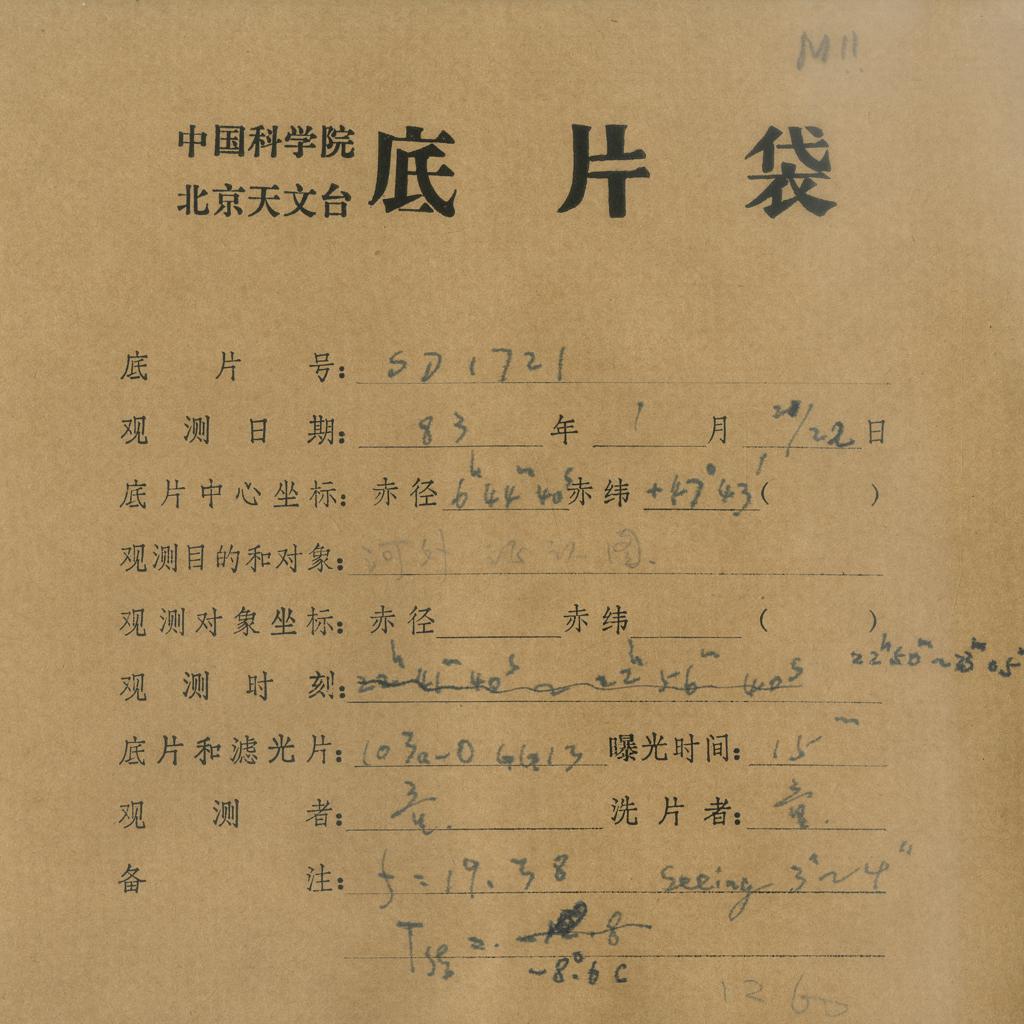 M11
中国科学院
北京天文台 底片袋
底片号: SD1721
观测日期: 83年1月21/22日
底片中心坐标: 赤径6h44m40s赤纬+47°43′( )
观测目的和对象: 河外 图.
观测对象坐标: 赤径 赤纬 ( )
22h50m~23h05m
观测时刻: 22h41m40s~22h56m40s
底片和滤光片: 103a-O GG13 曝光时间: 15m
观测者: 洗片者:
备注: f=19.38 seeing 3″~4″
T =
-8.°6C
12